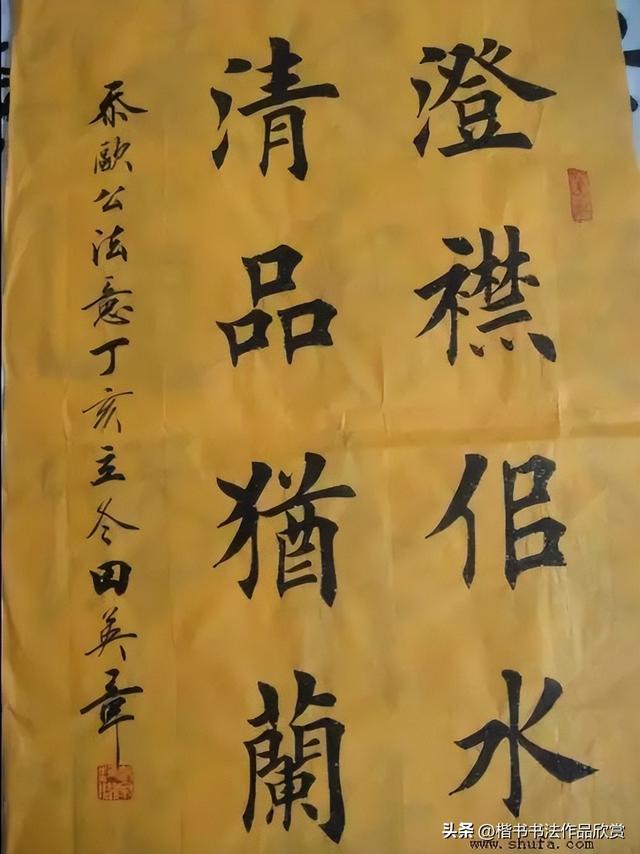 澄襟佀水
清品猶蘭
参歐公法意丁亥立冬田英章
头条 @楷书书法作品欣赏
www.shufa.com